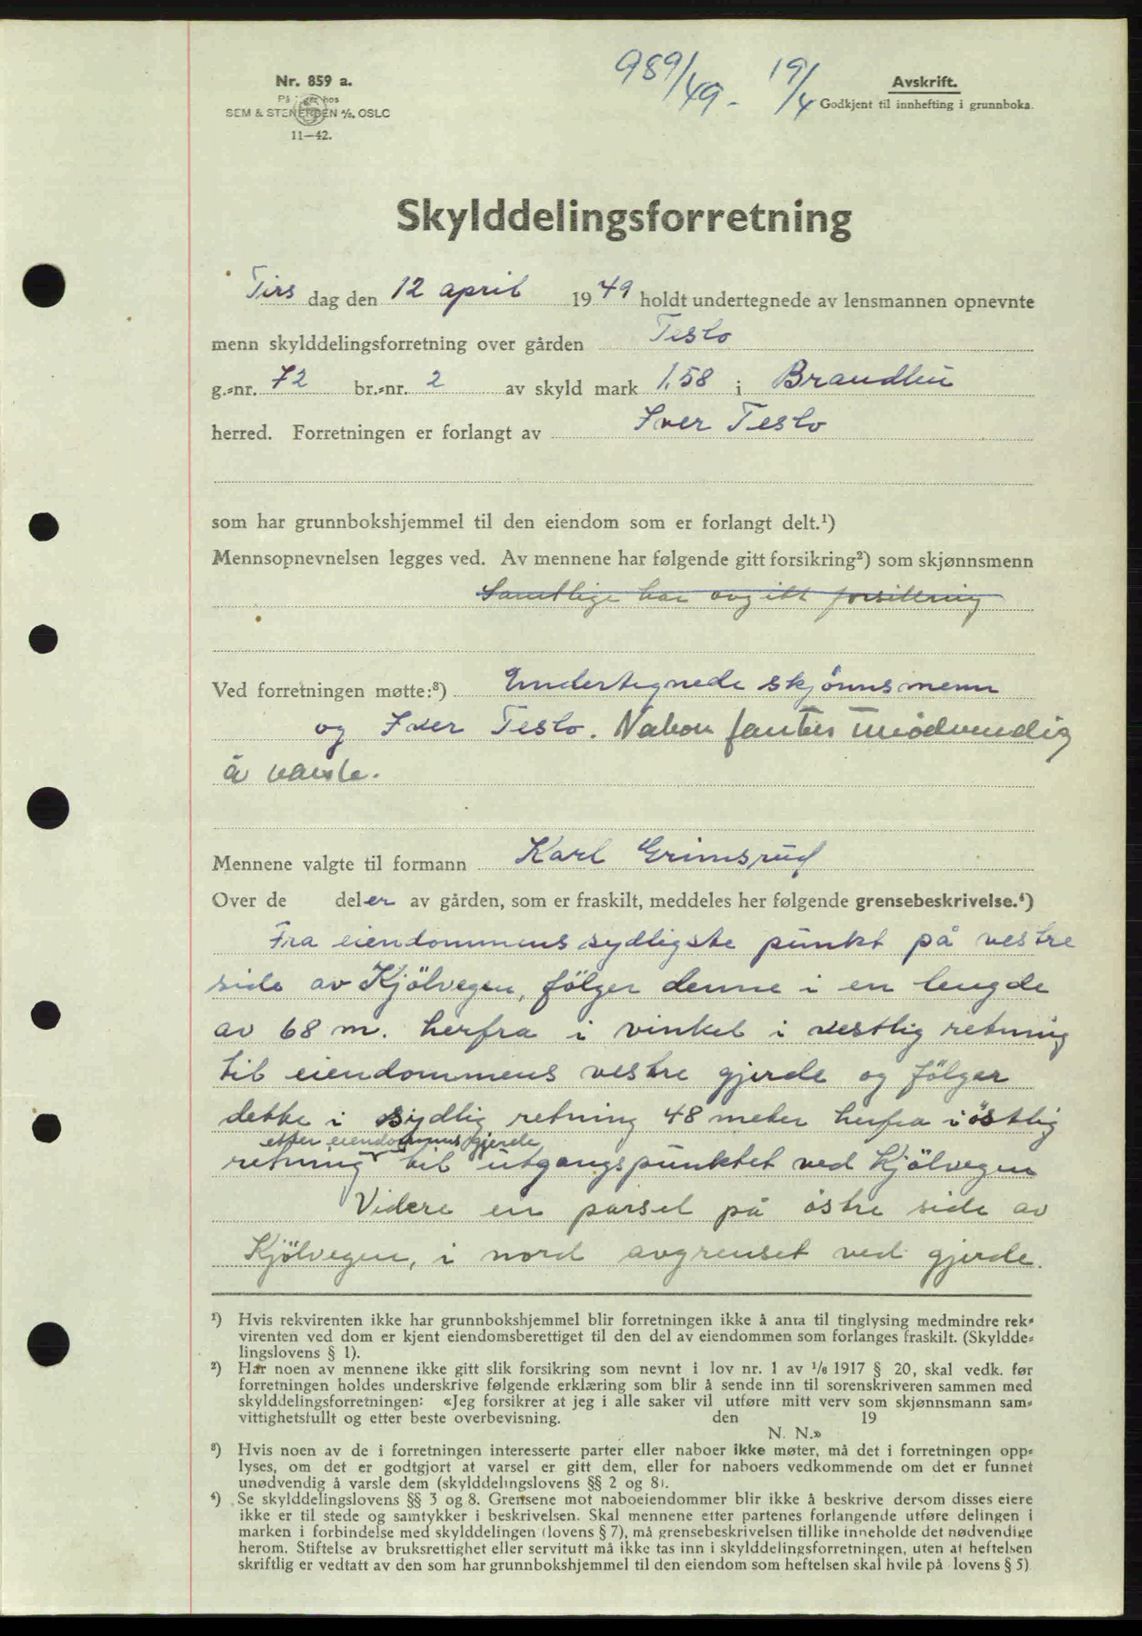 989/49 - 19/4
Nr. 859 a.
På lager hos
SEM & STENERSEN A/S, OSLO
11—42.
Avskrift.
Godkjent til innhefting i grunnboka.
Skylddelingsforretning
Tirs dag den 12 april 1949 holdt undertegnede av lensmannen opnevnte
menn skylddelingsforretning over gården Teslo
g.-nr. 72 br.-nr. 2 av skyld mark 1,58 i Brandbu
herred. Forretningen er forlangt av Iver Teslo
som har grunnbokshjemmel til den eiendom som er forlangt delt.¹)
Mennsopnevnelsen legges ved. Av mennene har følgende gitt forsikring²) som skjønnsmenn
Samtlige har avgitt forsikring
Ved forretningen møtte:³) Undertegnede skjønnsmenn
og Iver Teslo. Naboer fantes unødvendig
å varsle.
Mennene valgte til formann Karl Grimsrud
Over de deler av gården, som er fraskilt, meddeles her følgende grensebeskrivelse.⁴)
Fra eiendommens sydligste punkt på vestre
side av Kjölvegen, fölger denne i en lengde
av 68 m. herfra i vinkel i vestlig retning
til eiendommens vestre gjerde og fölger
dette i sydlig retning 48 meter herfra i östlig
etter eiendommens gjerde
retning til utgangspunktet ved Kjölvegen
Videre en parsel på östre side av
Kjölvegen, i nord avgrenset ved gjerde.
¹) Hvis rekvirenten ikke har grunnbokshjemmel blir forretningen ikke å anta til tinglysing medmindre rek-
virenten ved dom er kjent eiendomsberettiget til den del av eiendommen som forlanges fraskilt. (Skyldde-
lingslovens § 1).
²) Har noen av mennene ikke gitt slik forsikring som nevnt i lov nr. 1 av 1/6 1917 § 20, skal vedk. før
forretningen holdes underskrive følgende erklæring som blir å sende inn til sorenskriveren sammen med
skylddelingsforretningen: «Jeg forsikrer at jeg i alle saker vil utføre mitt verv som skjønnsmann sam-
vittighetsfullt og etter beste overbevisning. den 19
N. N.»
³) Hvis noen av de i forretningen interesserte parter eller naboer ikke møter, må det i forretningen opp-
lyses, om det er godtgjort at varsel er gitt dem, eller for naboers vedkommende om det er funnet
unødvendig å varsle dem (skylddelingslovens §§ 2 og 8).
⁴) Se skylddelingslovens §§ 3 og 8. Grensene mot naboeiendommer blir ikke å beskrive dersom disses eiere
ikke er til stede og samtykker i beskrivelsen. Skal mennene etter partenes forlangende utføre delingen i
marken i forbindelse med skylddelingen (lovens § 7), må grensebeskrivelsen tillike inneholde det nødvendige
herom. Stiftelse av bruksrettighet eller servitutt må ikke tas inn i skylddelingsforretningen, uten at heftelsen
skriftlig er vedtatt av den som har grunnbokshjemmel til den eiendom som heftelsen skal hvile på lovens § 5)